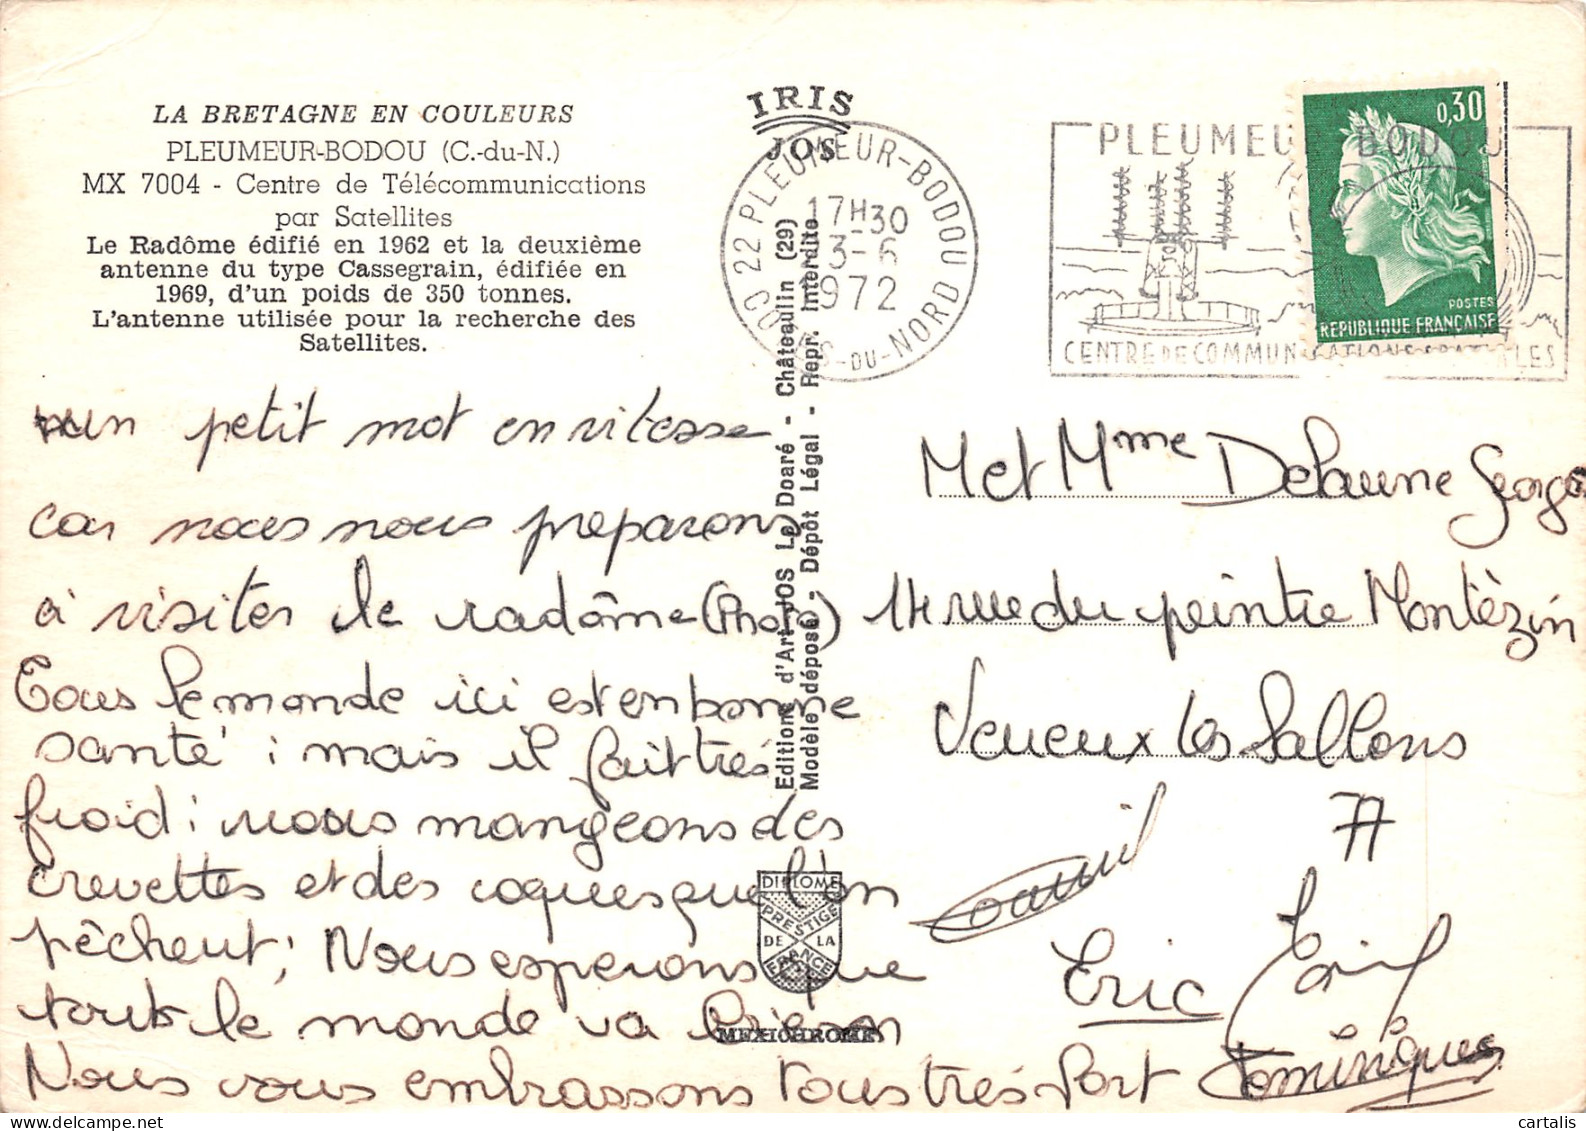 LA BRETAGNE EN COULEURS
PLEUMEUR-BODOU (C.-du-N.)
MX 7004 - Centre de Télécommunications
par Satellites
Le Radôme édifié en 1962 et la deuxième
antenne du type Cassegrain, édifiée en
1969, d'un poids de 350 tonnes.
L'antenne utilisée pour la recherche des
Satellites.
un petit mot en vitesse
car nous nous preparons
à visiter le radôme (Photo)
Tous le monde ici est en bonne
santé ; mais il fait très
froid ; nous mangeons des
crevettes et des coques que l'on
pêchent ; Nous esperons que
touts le monde va bien
Nous vous embrassons tous très fort
IRIS
JOS
Editions d'Art JOS Le Doaré - Châteaulin (29)
Modèle déposé - Dépôt Légal - Repr. Interdite
DIPLOME
PRESTIGE
DE LA
FRANCE
MEXICHROME
22 PLEUMEUR-BODOU
17H30
3-6
1972
COTES-DU-NORD
PLEUMEUR BODOU
CENTRE DE COMMUNICATIONS SPATIALES
0,30
POSTES
REPUBLIQUE FRANÇAISE
M et Mme Delaune Georges
14 rue du peintre Montézin
Veneux les Sablons
77
Eric
Dominique
cartalis